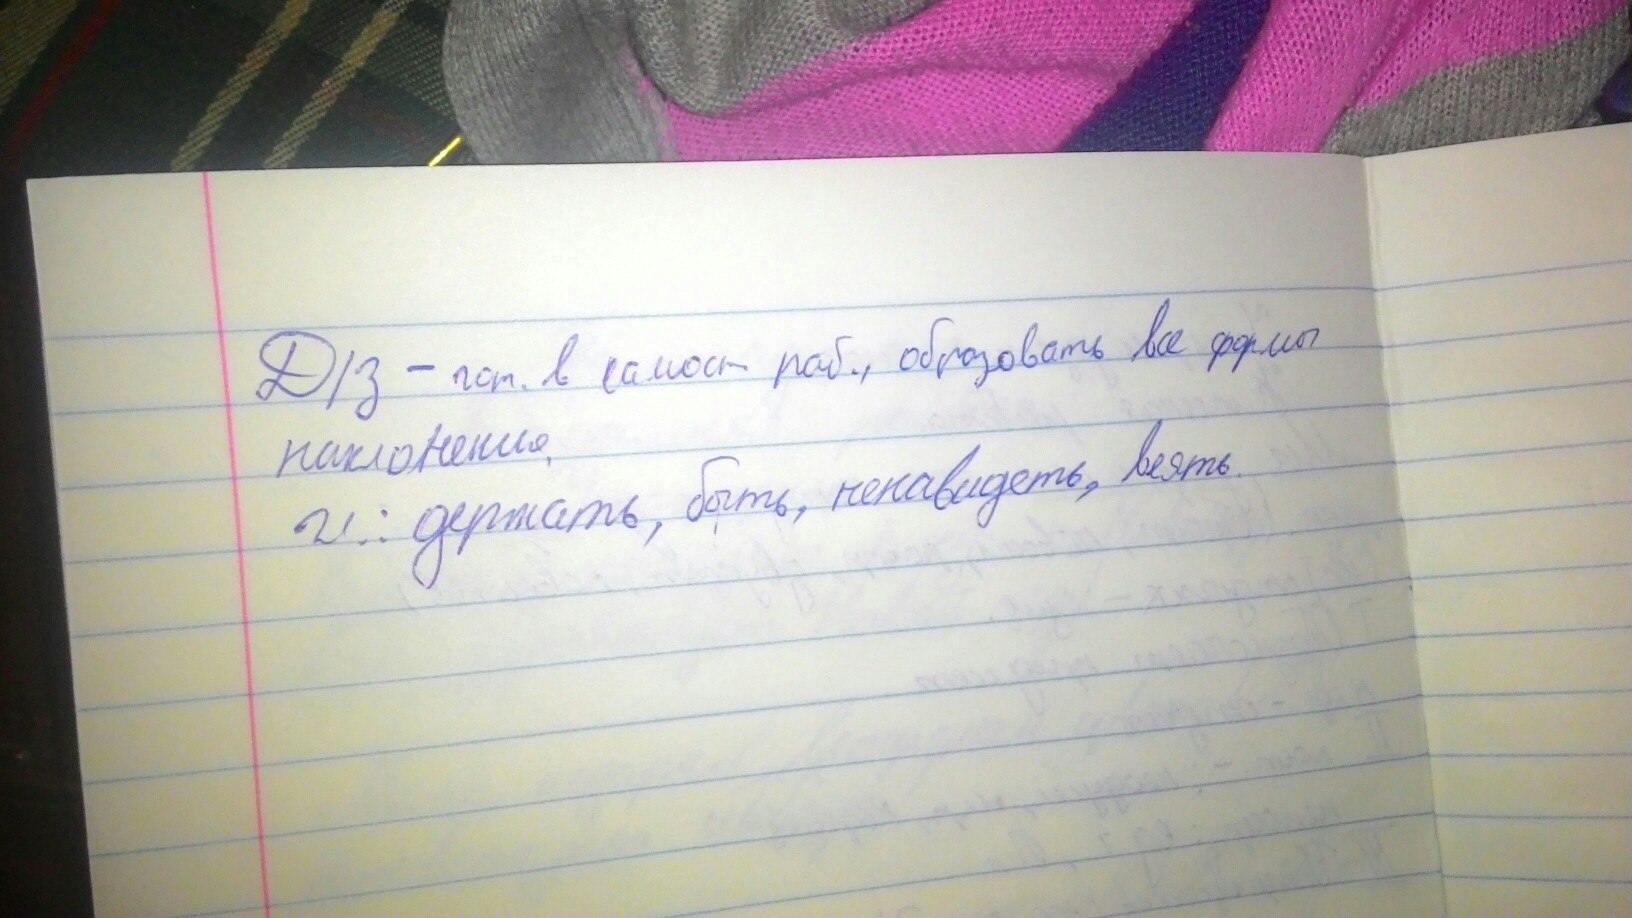 Д/з - гот. в самост раб., образовать все формы
наклонения.
г.: держать, быть, ненавидеть, веять.